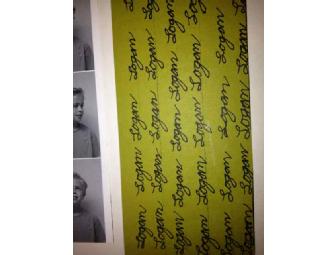 Logan Logan Logan Logan Logan
Logan Logan Logan Logan Logan
Logan Logan Logan Logan Logan
Logan Logan Logan Logan Logan
Logan Logan Logan Logan Logan
Logan Logan Logan Logan Logan